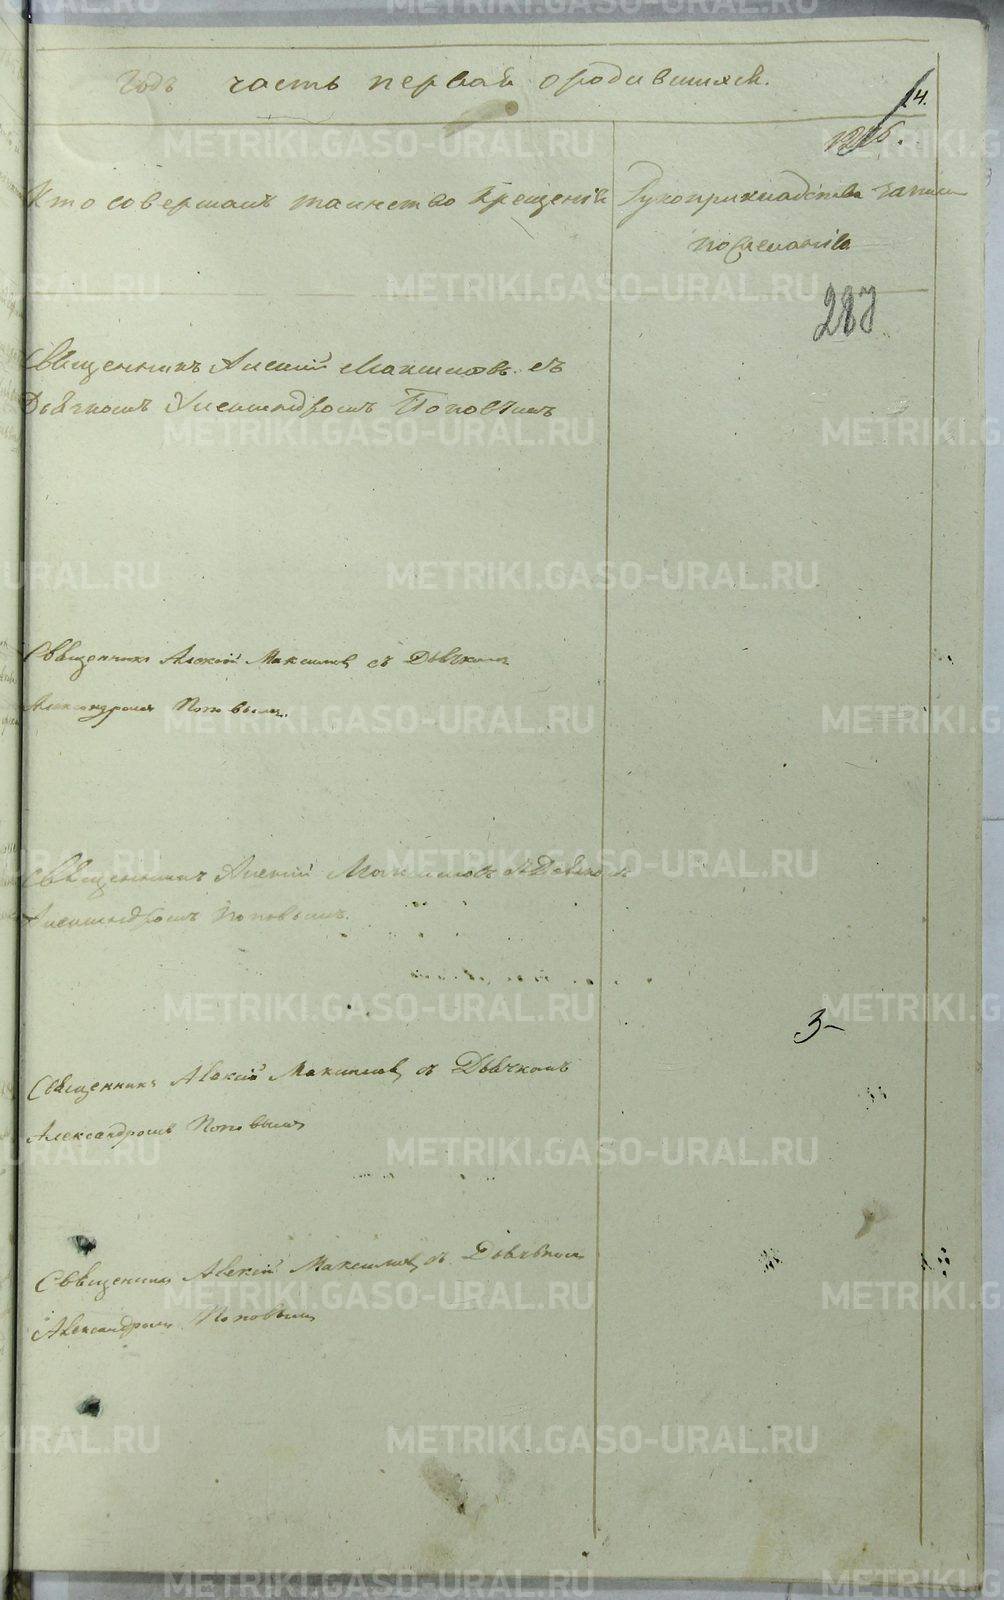 Годъ часть первая о родившихся.
4.
Кто совершалъ таинство крещенія
Рукоприкладство записи
по желанію
287
Священникъ Алексій Максимовъ съ
Дьячкомъ Александромъ Поповымъ
Священникъ Алексій Максимовъ съ Дьячкомъ
Александромъ Поповымъ.
Священникъ Алексій Максимовъ съ Дьячкомъ
Александромъ Поповымъ.
3
Священникъ Алексій Максимовъ съ Дьячкомъ
Александромъ Поповымъ
Священникъ Алексій Максимовъ съ Дьячкомъ
Александромъ Поповымъ
METRIKI.GASO-URAL.RU